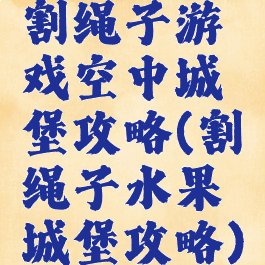 割绳子游
戏空中城
堡攻略(割
绳子水果
城堡攻略)